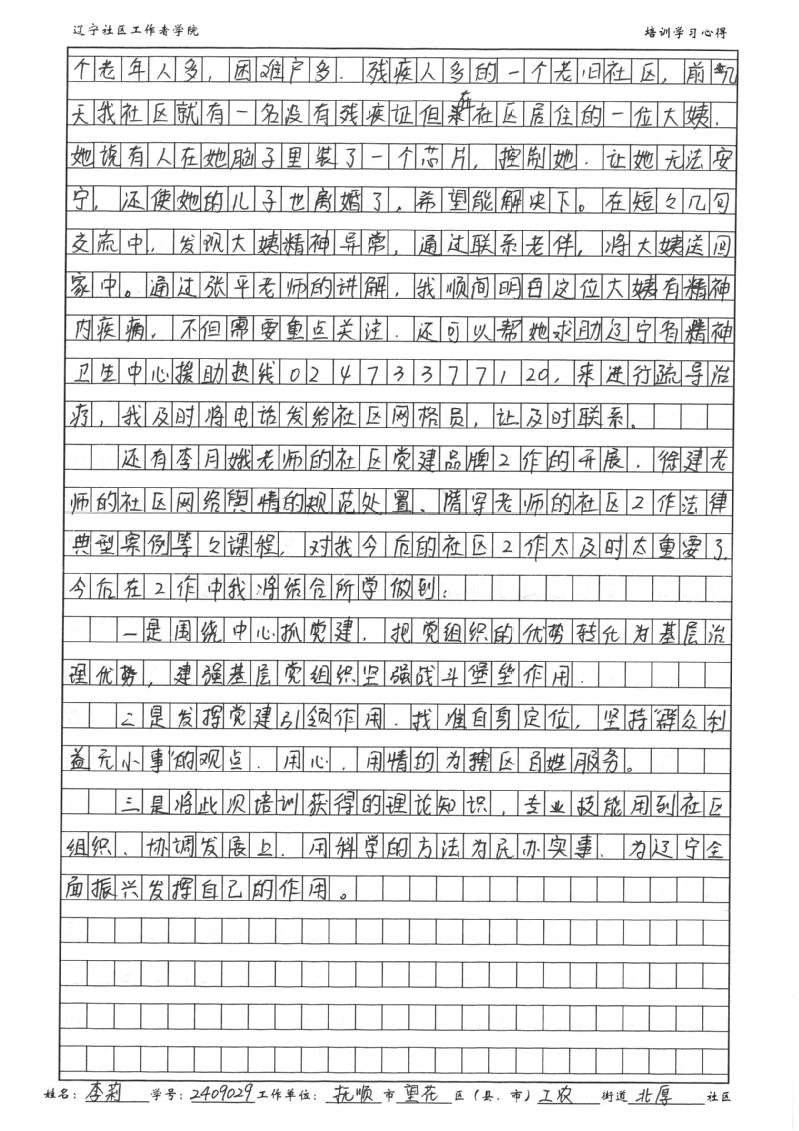 辽宁社区工作者学院 培训学习心得
个老年人多，困难户多．残疾人多的一个老旧社区，前几
天我社区就有一名没有残疾证但在社区居住的一位大姨．
她说有人在她脑子里装了一个芯片，控制她．让她无法安
宁，还使她的儿子也离婚了，希望能解决下。在短々几句
交流中，发现大姨精神异常，通过联系老伴，将大姨送回
家中。通过张平老师的讲解，我顺间明白这位大姨有精神
内疾病，不但需要重点关注．还可以帮她求助辽宁省精神
卫生中心援助热线024 73377120，来进行疏导治
疗，我及时将电话发给社区网格员，让及时联系。
还有李月娥老师的社区党建品牌工作的开展．徐建老
师的社区网络舆情的规范处置、隋军老师的社区工作法律
典型案例等々课程，对我今后的社区工作太及时太重要了
今后在工作中我将结合所学做到：
一是围绕中心抓党建．把党组织的优势转化为基层治
理优势，建强基层党组织坚强战斗堡垒作用．
二是发挥党建引领作用．找准自身定位，坚持“群众利
益无小事”的观点．用心．用情的为辖区百姓服务。
三是将此次培训获得的理论知识，专业技能用到社区
组织、协调发展上．用科学的方法为民办实事．为辽宁全
面振兴发挥自己的作用。
姓名：李莉 学号：2409029 工作单位：抚顺 市 望花 区（县、市）工农 街道 北厚 社区